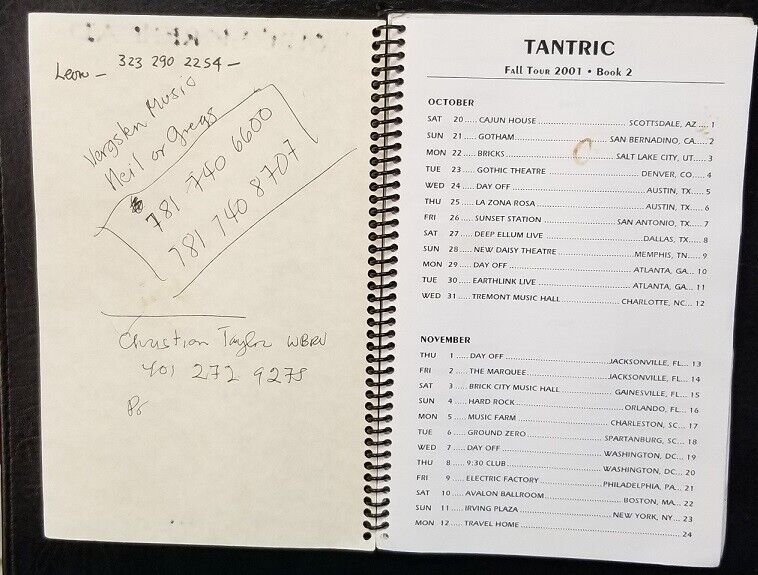 Leon - 323 290 2254 -
Vergsten Music
Neil or Gregs
781 740 6600
781 740 8707
Christian Taylor WBRU
401 272 9278
TANTRIC
FALL TOUR 2001 • BOOK 2
OCTOBER
SAT 20..... CAJUN HOUSE ..... SCOTTSDALE, AZ .... 1
SUN 21..... GOTHAM ..... SAN BERNADINO, CA..... 2
MON 22..... BRICKS ..... SALT LAKE CITY, UT..... 3
TUE 23..... GOTHIC THEATRE ..... DENVER, CO..... 4
WED 24..... DAY OFF ..... AUSTIN, TX..... 5
THU 25..... LA ZONA ROSA ..... AUSTIN, TX..... 6
FRI 26..... SUNSET STATION ..... SAN ANTONIO, TX..... 7
SAT 27..... DEEP ELLUM LIVE ..... DALLAS, TX..... 8
SUN 28..... NEW DAISY THEATRE ..... MEMPHIS, TN..... 9
MON 29..... DAY OFF ..... ATLANTA, GA... 10
TUE 30..... EARTHLINK LIVE ..... ATLANTA, GA... 11
WED 31..... TREMONT MUSIC HALL ..... CHARLOTTE, NC... 12
NOVEMBER
THU 1..... DAY OFF ..... JACKSONVILLE, FL... 13
FRI 2..... THE MARQUEE ..... JACKSONVILLE, FL... 14
SAT 3..... BRICK CITY MUSIC HALL ..... GAINESVILLE, FL... 15
SUN 4..... HARD ROCK ..... ORLANDO, FL... 16
MON 5..... MUSIC FARM ..... CHARLESTON, SC... 17
TUE 6..... GROUND ZERO ..... SPARTANBURG, SC... 18
WED 7..... DAY OFF ..... WASHINGTON, DC... 19
THU 8..... 9:30 CLUB ..... WASHINGTON, DC... 20
FRI 9..... ELECTRIC FACTORY ..... PHILADELPHIA, PA... 21
SAT 10..... AVALON BALLROOM ..... BOSTON, MA... 22
SUN 11..... IRVING PLAZA ..... NEW YORK, NY... 23
MON 12..... TRAVEL HOME ..... 24